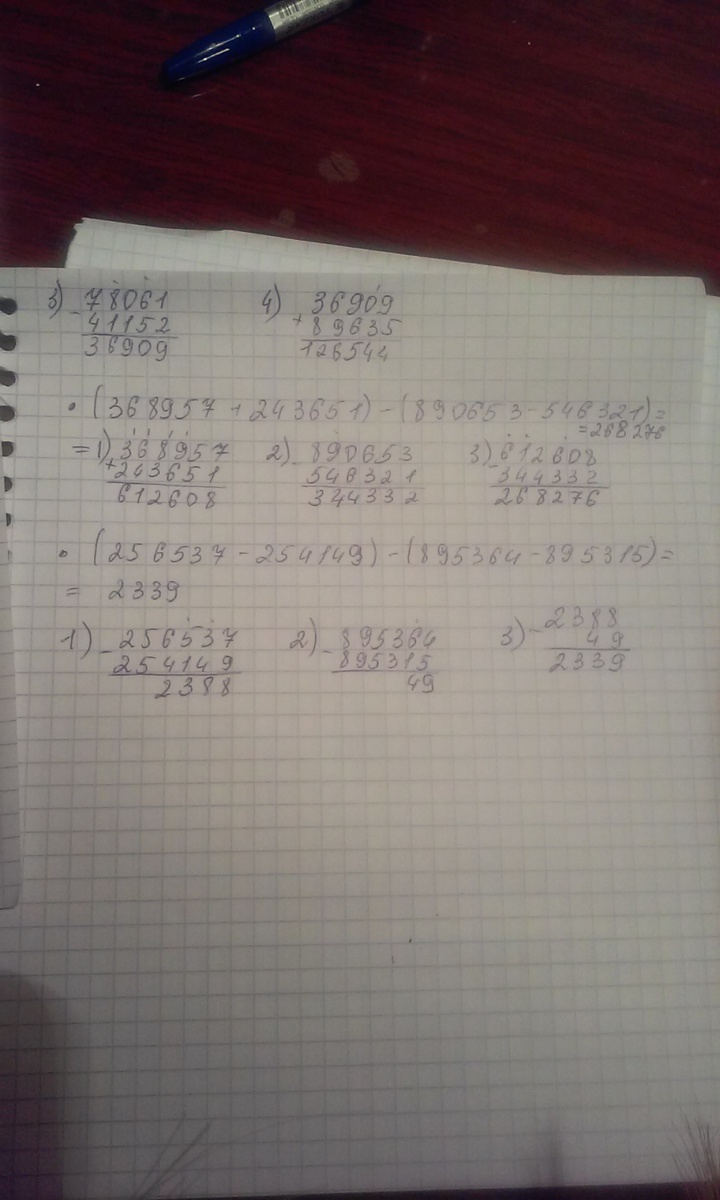 3) 78061 4) 36909
- 41152 + 89635
36909 126544
• (368957 + 243651) - (890653 - 546321) =
= 268276
= 1) 368957 2) 890653 3) 612608
+ 243651 - 546321 - 344332
612608 344332 268276
• (256537 - 254149) - (895364 - 895315) =
= 2339
1) 256537 2) 895364 3) 2388
- 254149 - 895315 - 49
2388 49 2339